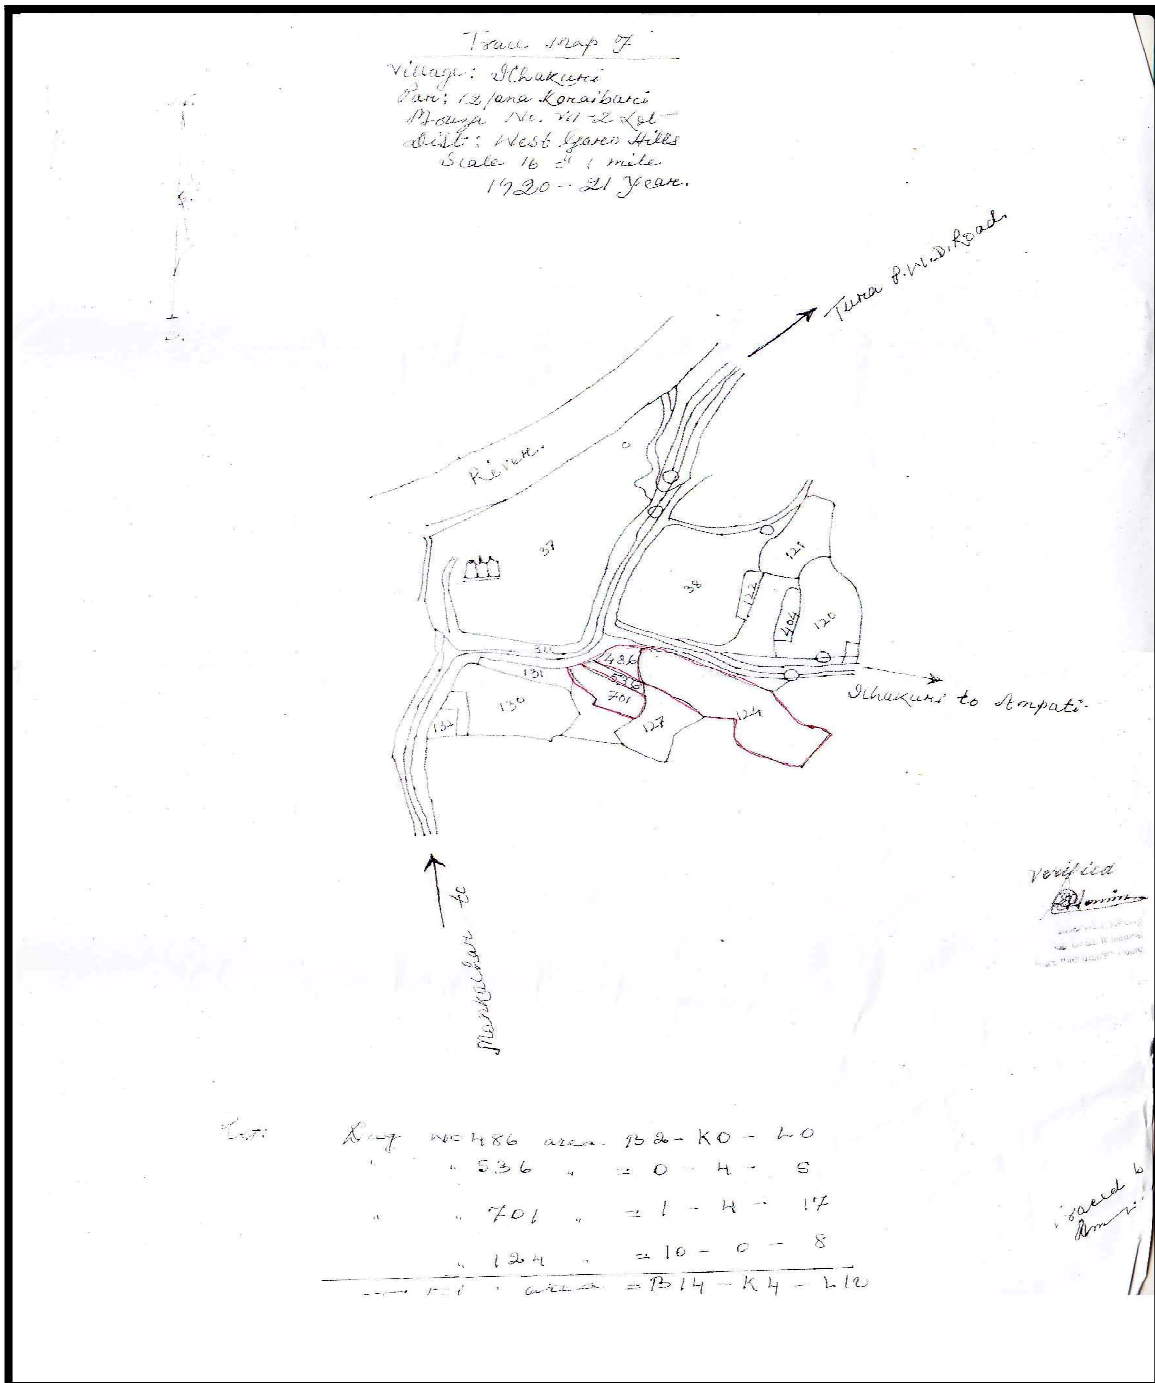 Trace Map of
Village: Ichakuri
Par: Izlana Koraibari
Mouza No. VI-2 Lot
Dist: West Garo Hills
Scale 16" = 1 mile
1920-21 Year.
Tura P.W.D. Road.
River.
37
38
121
122
404
120
486
536
701
131
130
132
127
124
Ichakuri to Ampati.
Mankachar to
Verified
Dag No 486 area. B2-K0-L0
" " 536 " = 0 - 4 - 5
" " 701 " = 1 - 4 - 17
" 124 " = 10 - 0 - 8
area = B14-K4-L12
Traced b